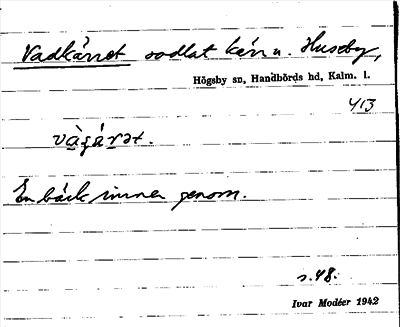 Vadkärret odlat kärr u. Huseby,
Högsby sn, Handbörds hd, Kalm. l.
413
En bäck rinner genom.
s. 48.
Ivar Modéer 1942